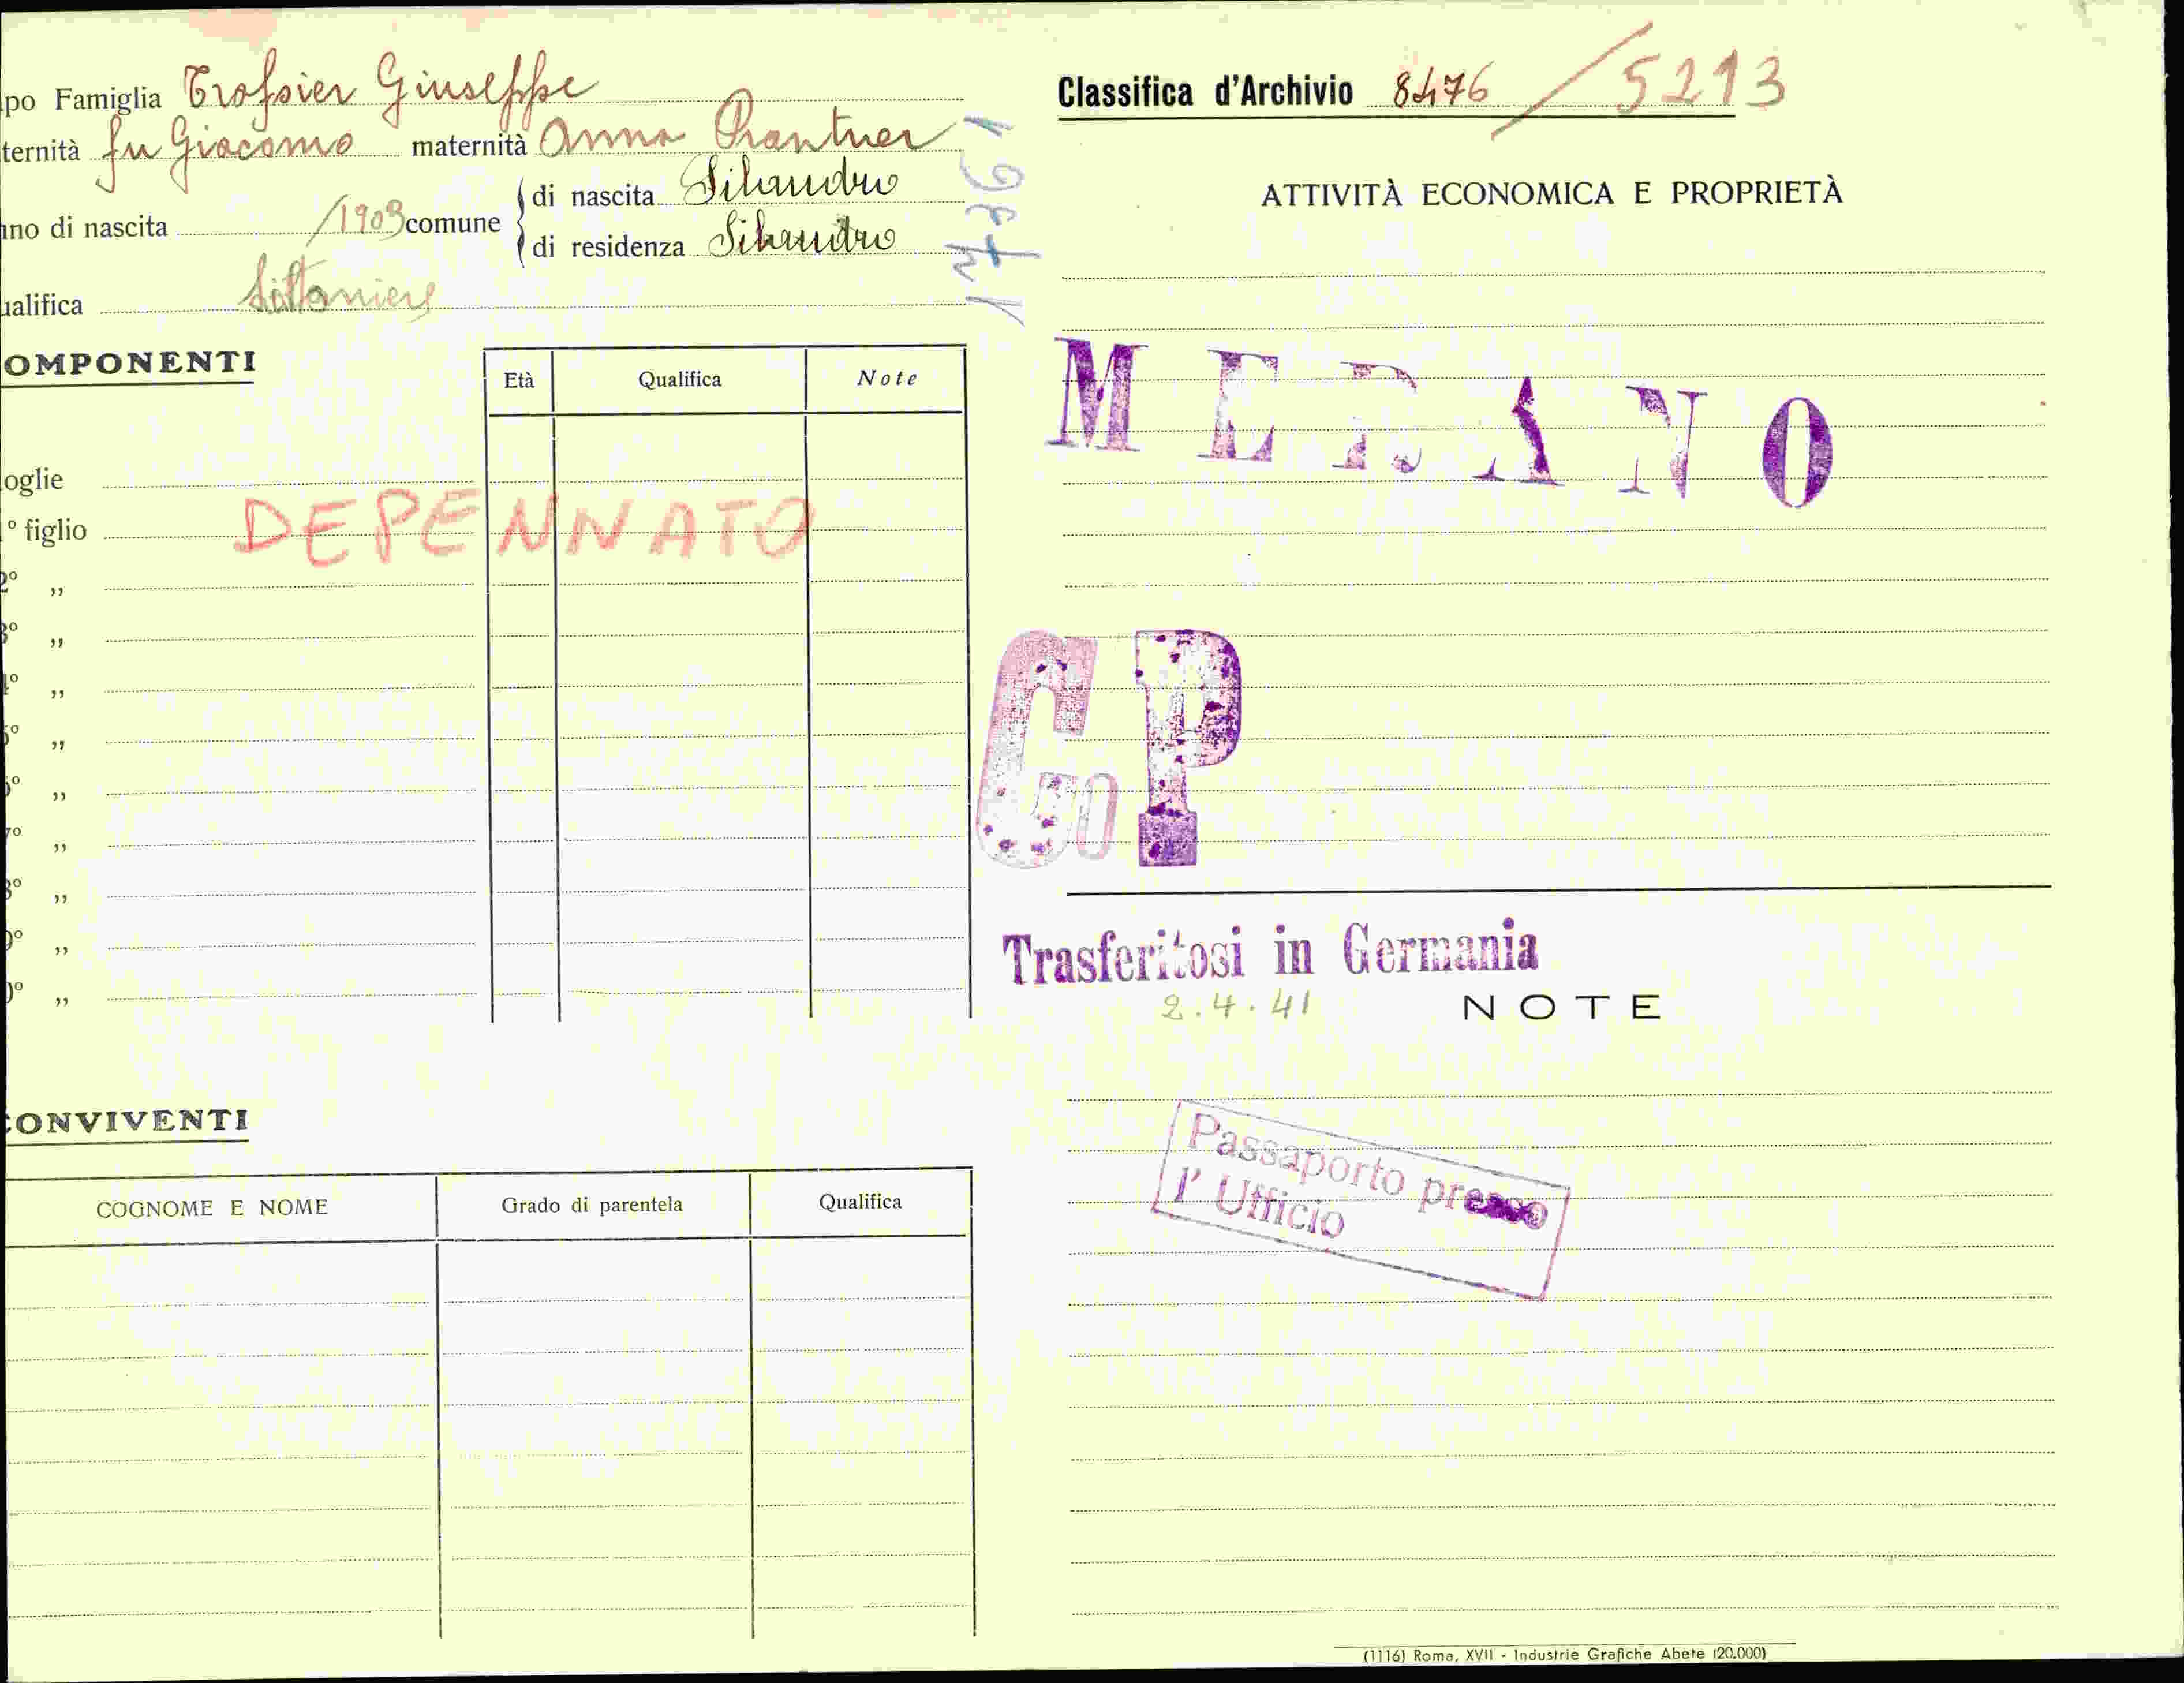 po Famiglia Trafoier Giuseppe
ternità fu Giacomo maternità Anna Prantner
no di nascita /1903 comune di nascita Silandro
di residenza Silandro
ualifica
OMPONENTI
Età Qualifica Note
oglie
º figlio
DEPENNATO
2º „
3º „
4º „
5º „
6º „
7º „
8º „
9º „
0º „
ONVIVENTI
COGNOME E NOME Grado di parentela Qualifica
Classifica d'Archivio 8476 / 5213
ATTIVITÀ ECONOMICA E PROPRIETÀ
MERANO
GP
Trasferitosi in Germania
2.4.41
NOTE
Passaporto presso
l' Ufficio
(1116) Roma, XVII - Industrie Grafiche Abete (20.000)